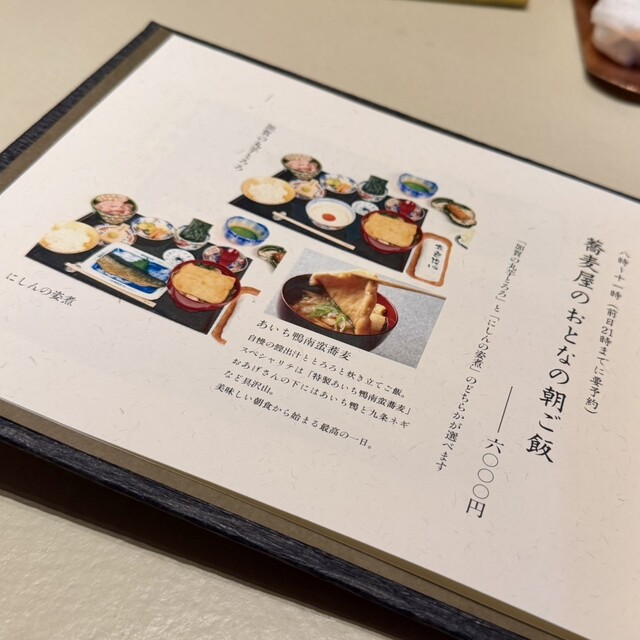 八時〜十一時(前日20時までに要予約)
蕎麦屋のおとなの朝ご飯
六〇〇〇円
「にしんの姿煮」のどちらかが選べます
にしんの姿煮
あいち鴨南蛮蕎麦
自慢の鰹出汁ととろろと炊き立てご飯。
スペシャリテは「特製あいち鴨南蛮蕎麦」
おあげさんの下にはあいち鴨と九条ネギ
など具沢山。
美味しい朝食から始まる最高の一日。